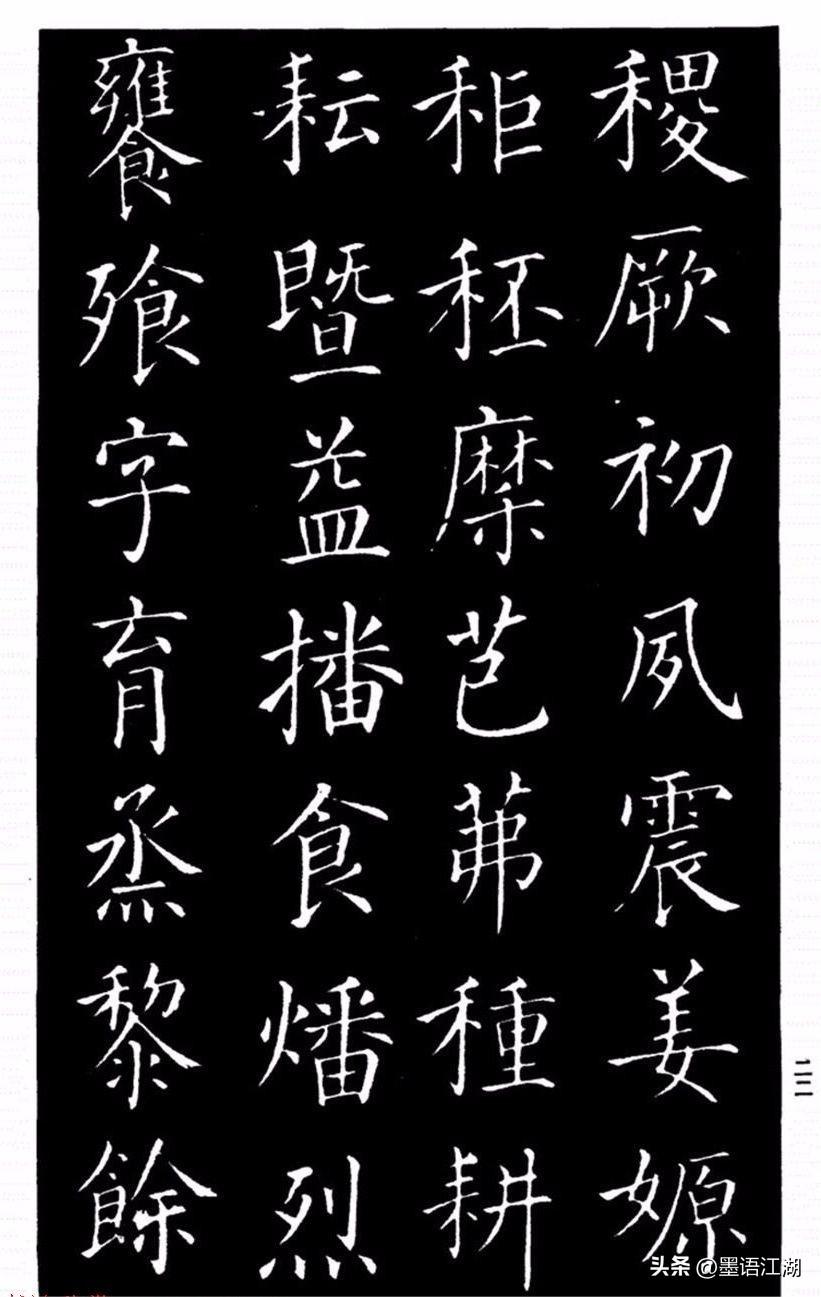 稷厥初夙震姜嫄
秬秠穈芑茀種耕
耘暨益播食燔烈
饔飱字育烝黎餘
二二
头条 @墨语江湖